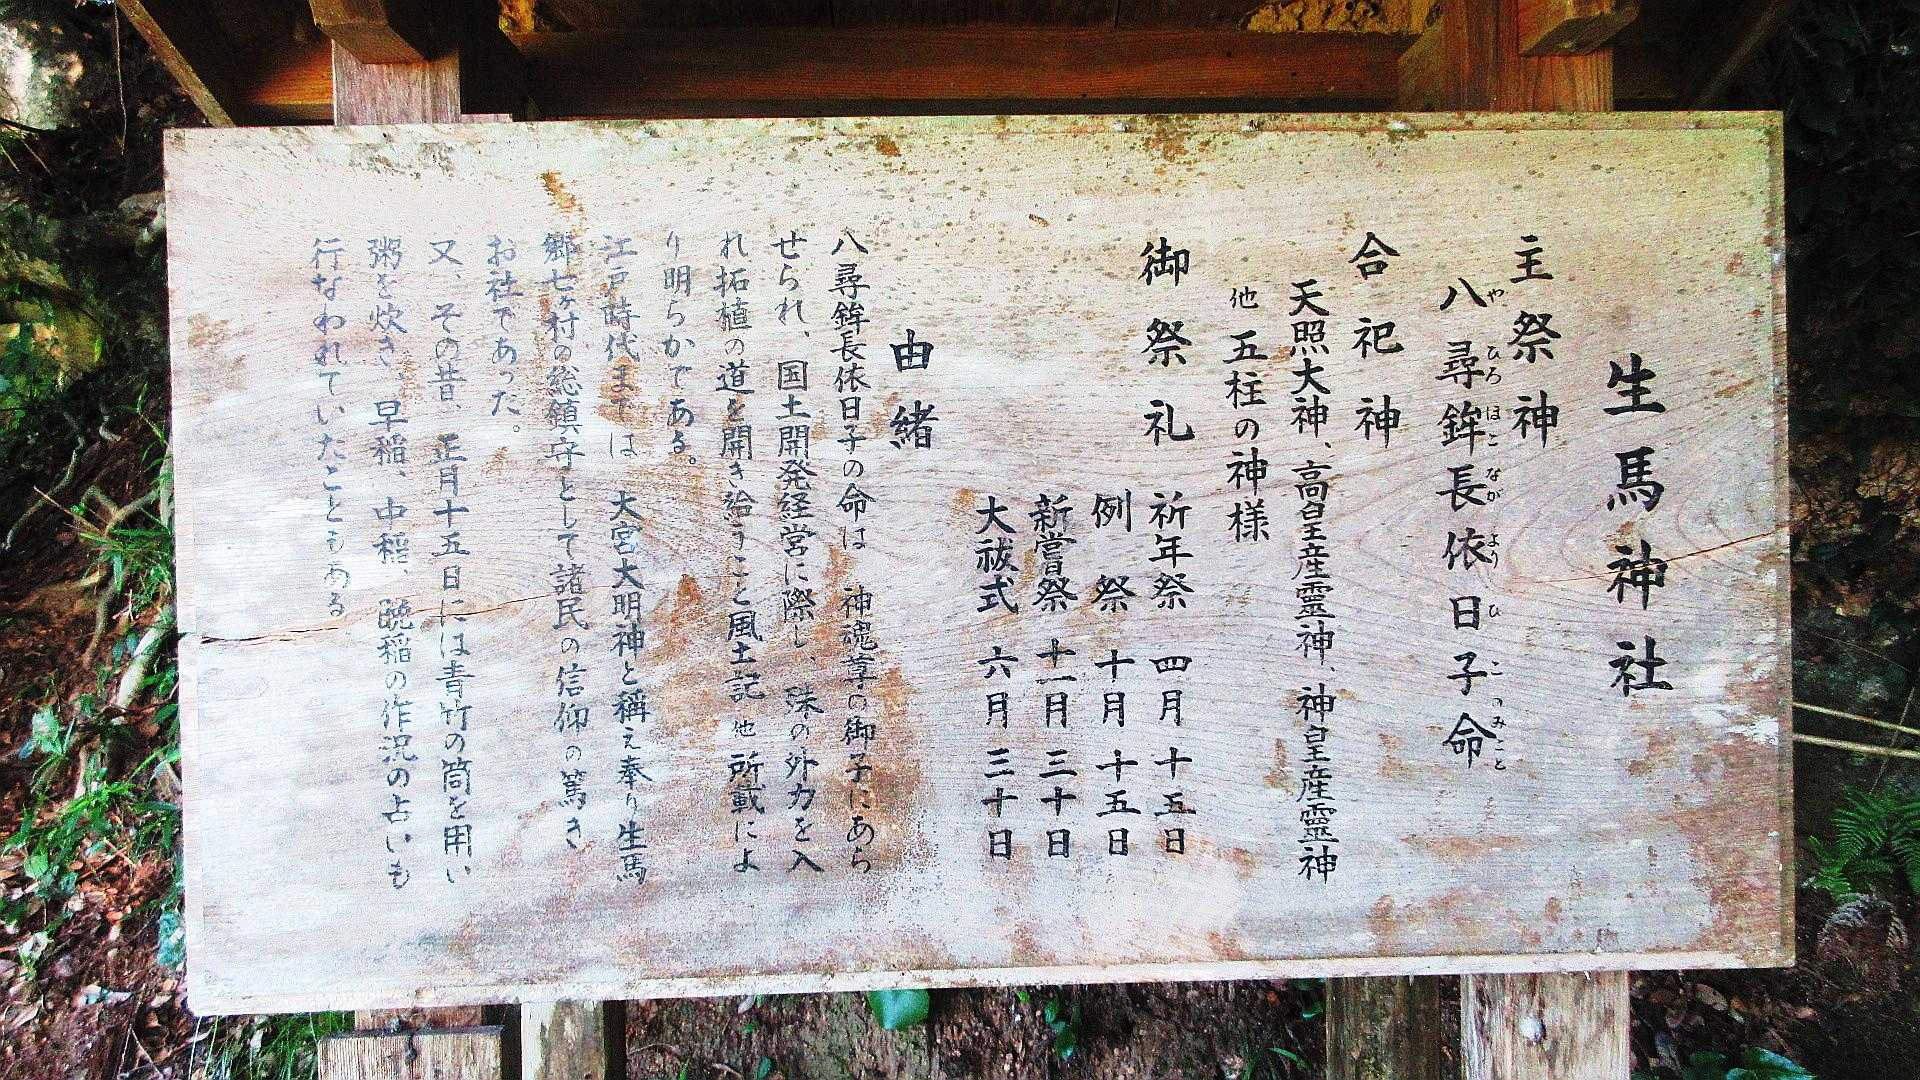 生馬神社
主祭神
八尋鉾長依日子命
や ひろ ほこ なが より ひ こ の みこと
合祀神
天照大神、高皇産霊神、神皇産霊神
他 五柱の神様
御祭礼
祈年祭 四月十五日
例祭 十月十五日
新嘗祭 十一月三十日
大祓式 六月三十日
由緒
八尋鉾長依日子の命は 神魂尊の御子にあら
せられ、国土開発経営に際し、殊の外力を入
れ拓植の道を開き給うこと風土記他所載によ
り明らかである。
江戸時代までは 大宮大明神と稱え奉り生馬
郷七ヶ村の総鎮守として諸民の信仰の篤き
お社であった。
又、その昔、正月十五日には青竹の筒を用い
粥を炊き、早稲、中稲、晩稲の作況の占いも
行なわれていたこともある